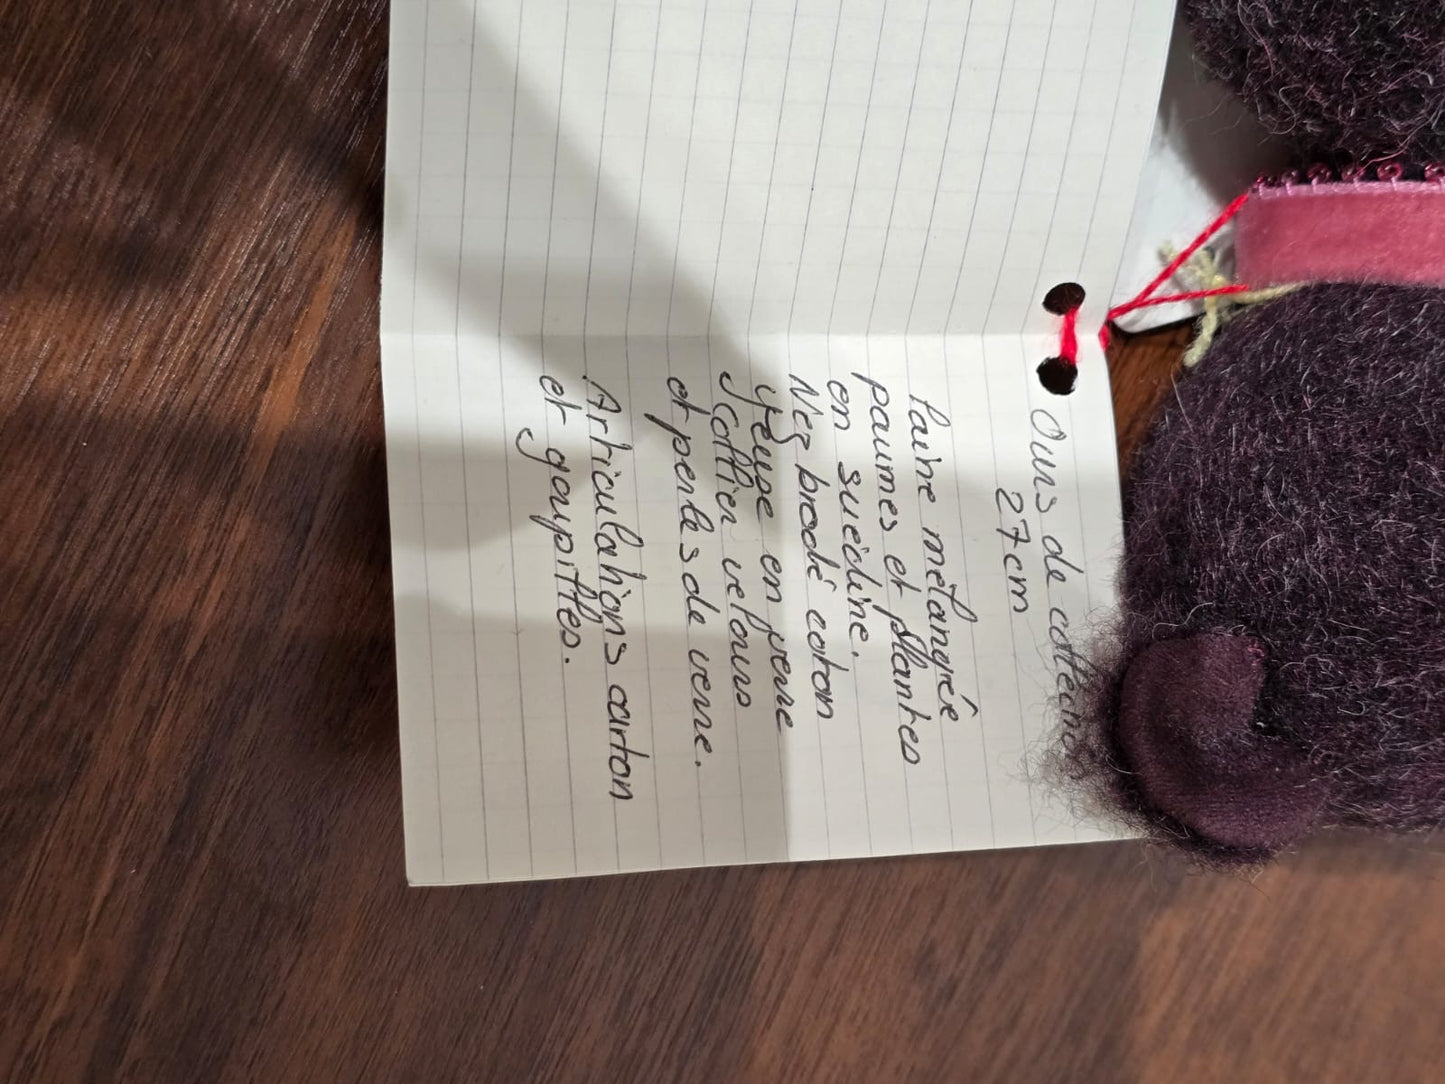 Ours de collection
27 cm
laine mélangée
paumes et plantes
en suédine.
Nez brodé coton
yeux en verre
Collier velours
et perles de verre.
Articulations carton
et goupilles.